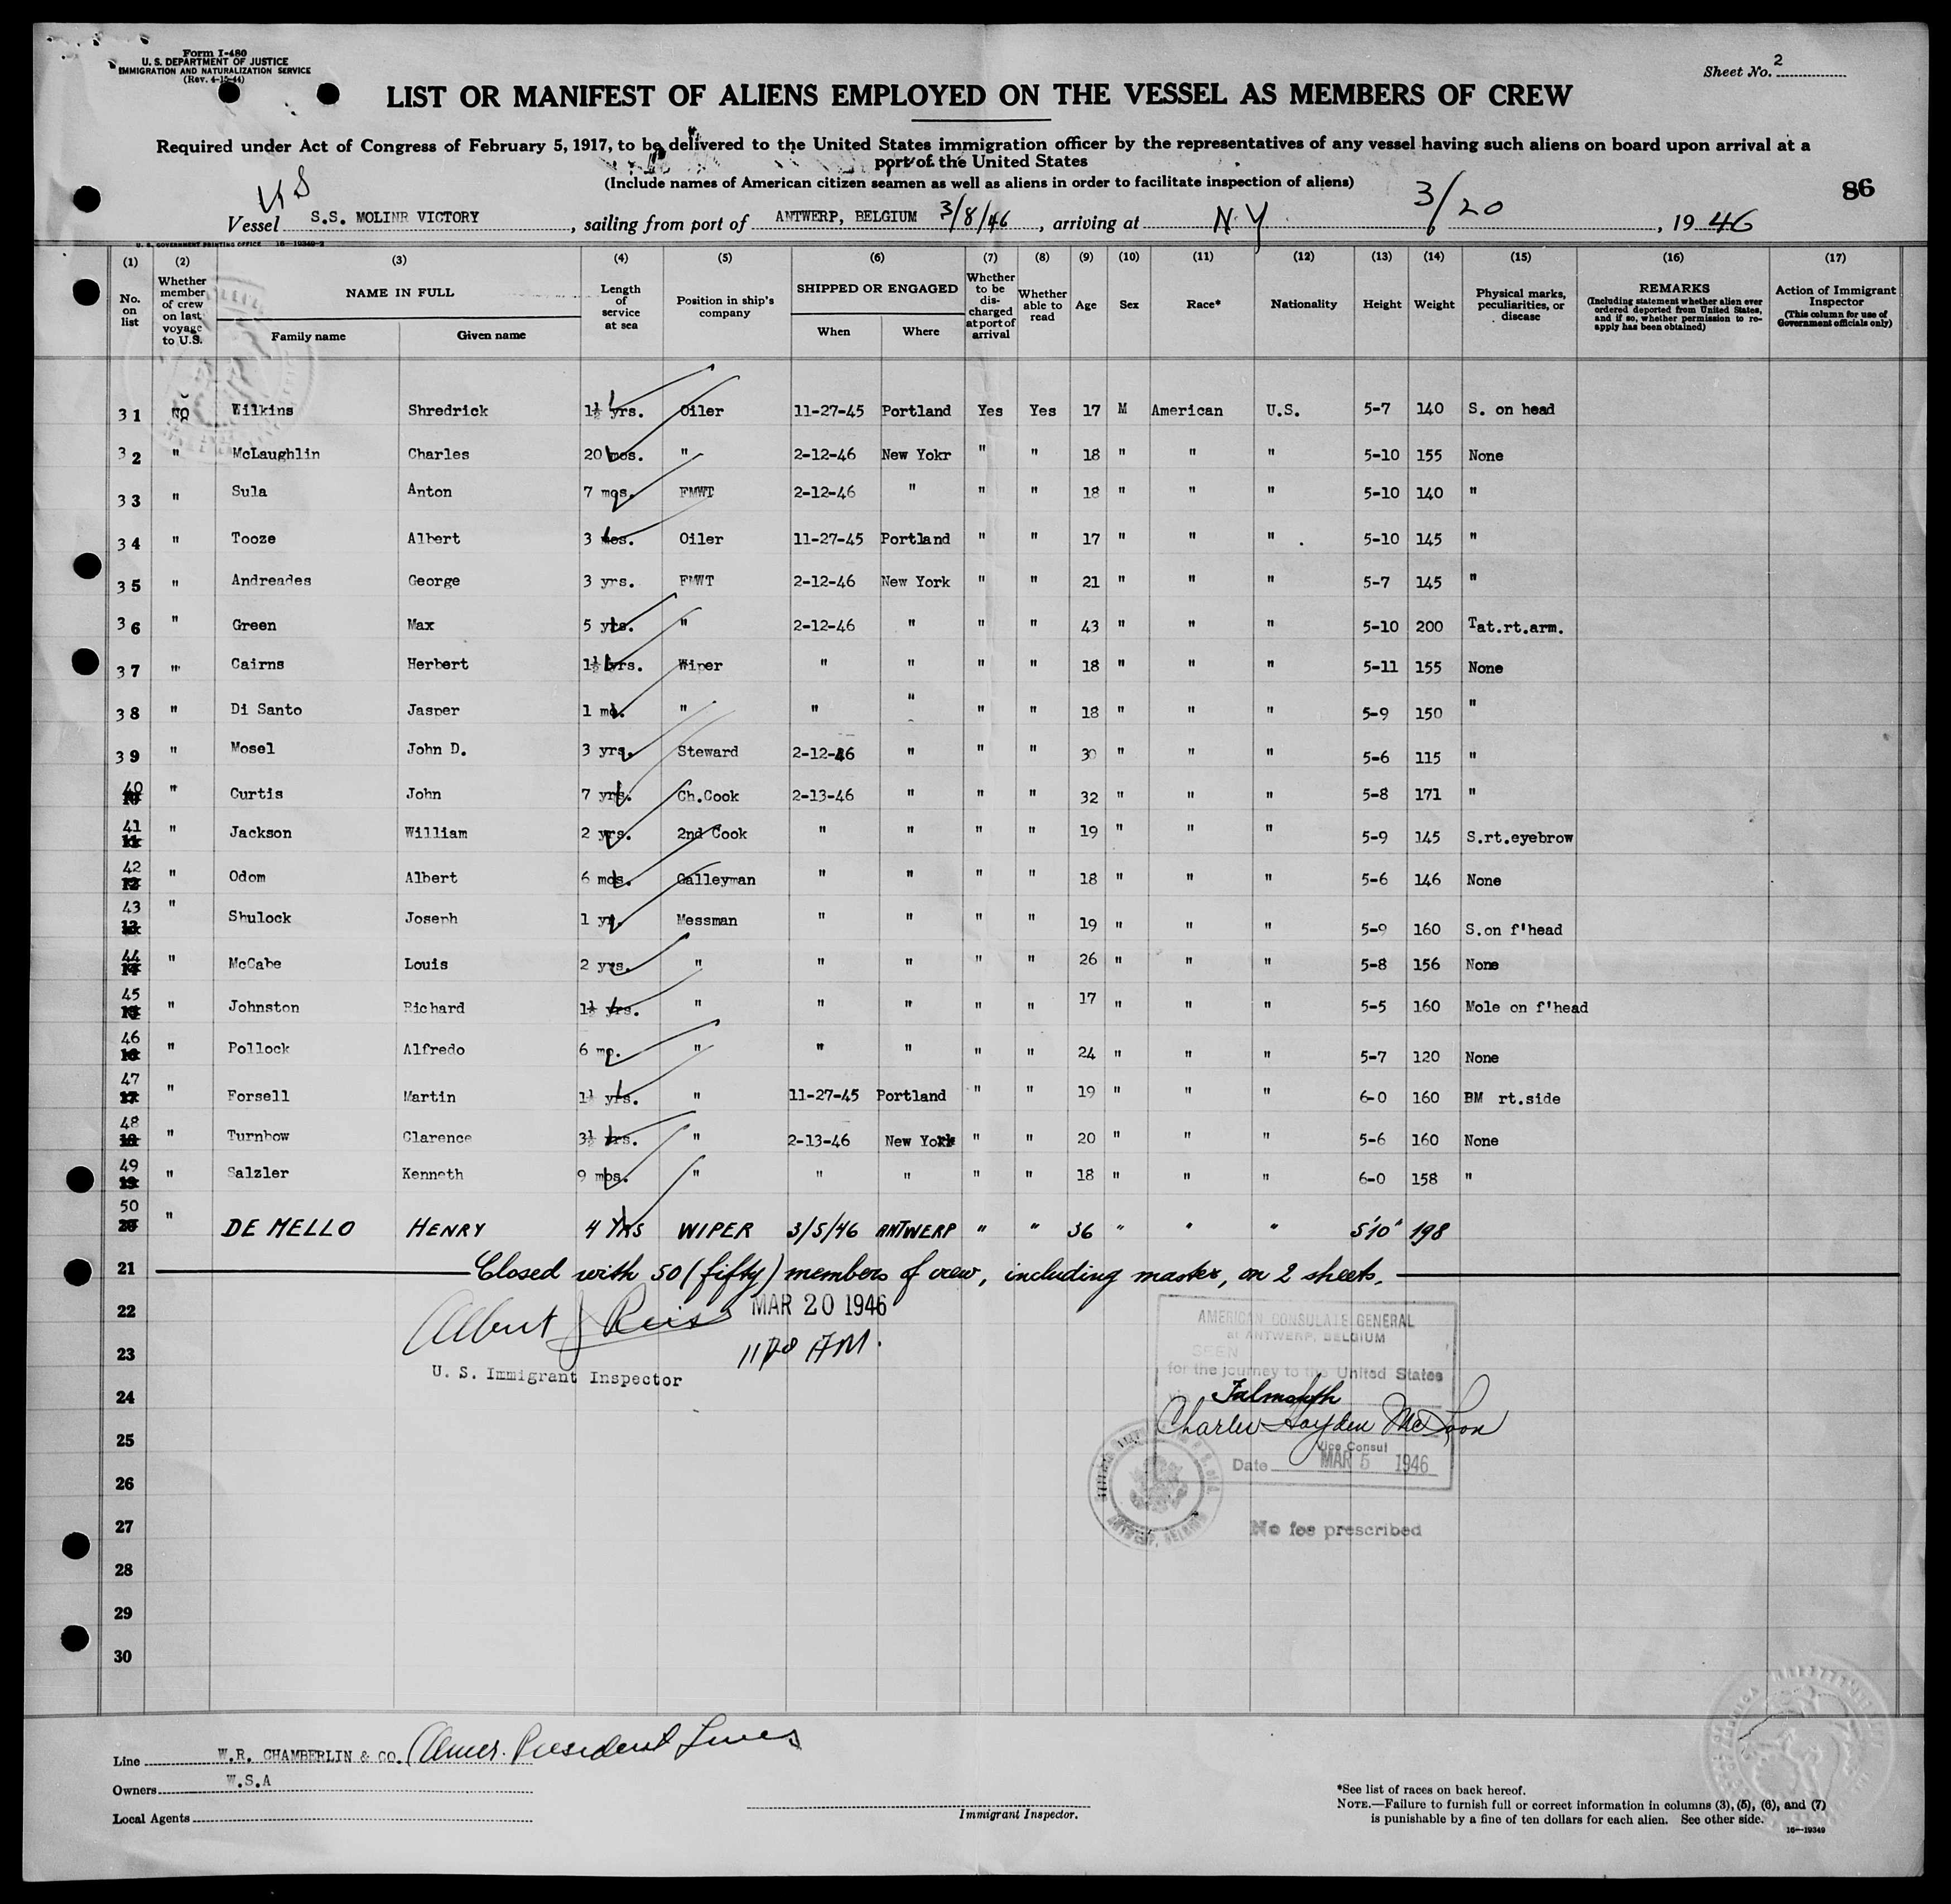 Form I-480
U. S. DEPARTMENT OF JUSTICE
IMMIGRATION AND NATURALIZATION SERVICE
(Rev. 4-15-44)
Sheet No. 2
LIST OR MANIFEST OF ALIENS EMPLOYED ON THE VESSEL AS MEMBERS OF CREW
Required under Act of Congress of February 5, 1917, to be delivered to the United States immigration officer by the representatives of any vessel having such aliens on board upon arrival at a
port of the United States
(Include names of American citizen seamen as well as aliens in order to facilitate inspection of aliens)
86
Vessel S.S. MOLINE VICTORY, sailing from port of ANTWERP, BELGIUM 3/8/46, arriving at N.Y 3/20, 1946
U. S. GOVERNMENT PRINTING OFFICE 16—19349-2
(1) (2) (3) (4) (5) (6) (7) (8) (9) (10) (11) (12) (13) (14) (15) (16) (17)
No. on list Whether member of crew on last voyage to U.S. NAME IN FULL Family name Given name Length of service at sea Position in ship's company SHIPPED OR ENGAGED When Where Whether to be discharged at port of arrival Whether able to read Age Sex Race* Nationality Height Weight Physical marks, peculiarities, or disease REMARKS (Including statement whether alien ever ordered deported from United States, and if so, whether permission to reapply has been obtained) Action of Immigrant Inspector (This column for use of Government officials only)
31 No Wilkins Shredrick 1½ yrs. Oiler 11-27-45 Portland Yes Yes 17 M American U.S. 5-7 140 S. on head
32 " McLaughlin Charles 20 mos. " 2-12-46 New Yokr " " 18 " " " 5-10 155 None
33 " Sula Anton 7 mos. FMWT 2-12-46 " " " 18 " " " 5-10 140 "
34 " Tooze Albert 3 mos. Oiler 11-27-45 Portland " " 17 " " " 5-10 145 "
35 " Andreades George 3 yrs. FMWT 2-12-46 New York " " 21 " " " 5-7 145 "
36 " Green Max 5 yrs. " 2-12-46 " " " 43 " " " 5-10 200 Tat.rt.arm.
37 " Cairns Herbert 1½ yrs. Wiper " " " " 18 " " " 5-11 155 None
38 " Di Santo Jasper 1 mo. " " " " " 18 " " " 5-9 150 "
39 " Mosel John D. 3 yrs. Steward 2-12-46 " " " 30 " " " 5-6 115 "
40 " Curtis John 7 yrs. Ch.Cook 2-13-46 " " " 32 " " " 5-8 171 "
41 " Jackson William 2 yrs. 2nd Cook " " " " 19 " " " 5-9 145 S.rt.eyebrow
42 " Odom Albert 6 mos. Galleyman " " " " 18 " " " 5-6 146 None
43 " Shulock Joseph 1 yr. Messman " " " " 19 " " " 5-9 160 S.on f'head
44 " McCabe Louis 2 yrs. " " " " " 26 " " " 5-8 156 None
45 " Johnston Richard 1½ yrs. " " " " " 17 " " " 5-5 160 Mole on f'head
46 " Pollock Alfredo 6 mo. " " " " " 24 " " " 5-7 120 None
47 " Forsell Martin 1½ yrs. " 11-27-45 Portland " " 19 " " " 6-0 160 BM rt.side
48 " Turnbow Clarence 3½ yrs. " 2-13-46 New York " " 20 " " " 5-6 160 None
49 " Salzler Kenneth 9 mos. " " " " " 18 " " " 6-0 158 "
50 " DE MELLO HENRY 4 YRS WIPER 3/5/46 ANTWERP " " 36 " " " 5'10" 198
21 Closed with 50 (fifty) members of crew, including master, on 2 sheets.
22 Albert J Reiss MAR 20 1946
AMERICAN CONSULATE GENERAL
at ANTWERP, BELGIUM
23 AM.
SEEN
U. S. Immigrant Inspector
for the journey to the United States
24 via Falmouth
25 Charles Hayden McLoon
Vice Consul
Date MAR 5 1946
26
27 No fee prescribed
28
29
30
Line W.R. CHAMBERLIN & CO. (Amer. President Lines
Owners W.S.A
Local Agents
Immigrant Inspector.
*See list of races on back hereof.
NOTE.—Failure to furnish full or correct information in columns (3), (5), (6), and (7)
is punishable by a fine of ten dollars for each alien. See other side.
16—19349